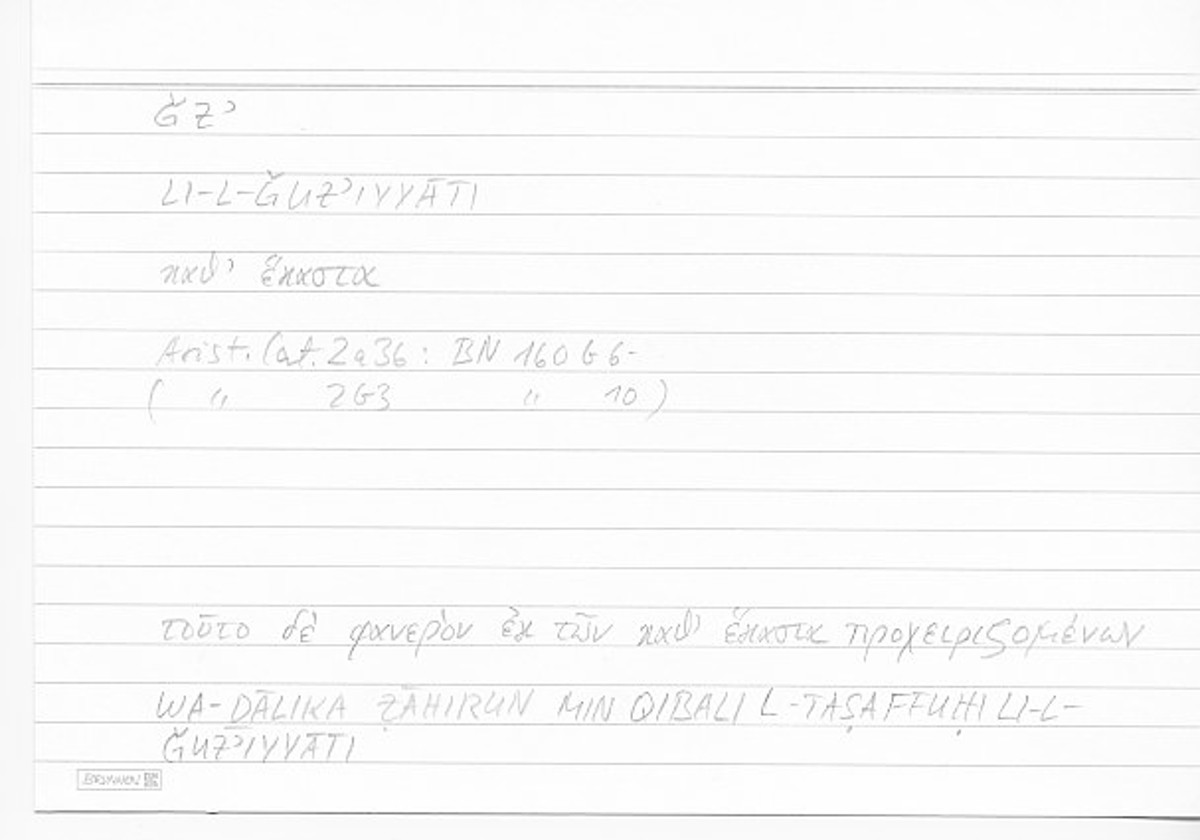 Ǧ Z ʾ
LI-L-ǦUZʾIYYĀTI
καθ' ἕκαστα
Arist. Cat. 2a36 : BN 160 b 6-
( " 2b3 " 10 )
τοῦτο δὲ φανερὸν ἐκ τῶν καθ' ἕκαστα προχειριζομένων
WA-ḎĀLIKA ẒĀHIRUN MIN QIBALI L-TAṢAFFUḤI LI-L-
ǦUZʾIYYĀTI
BRUNNEN